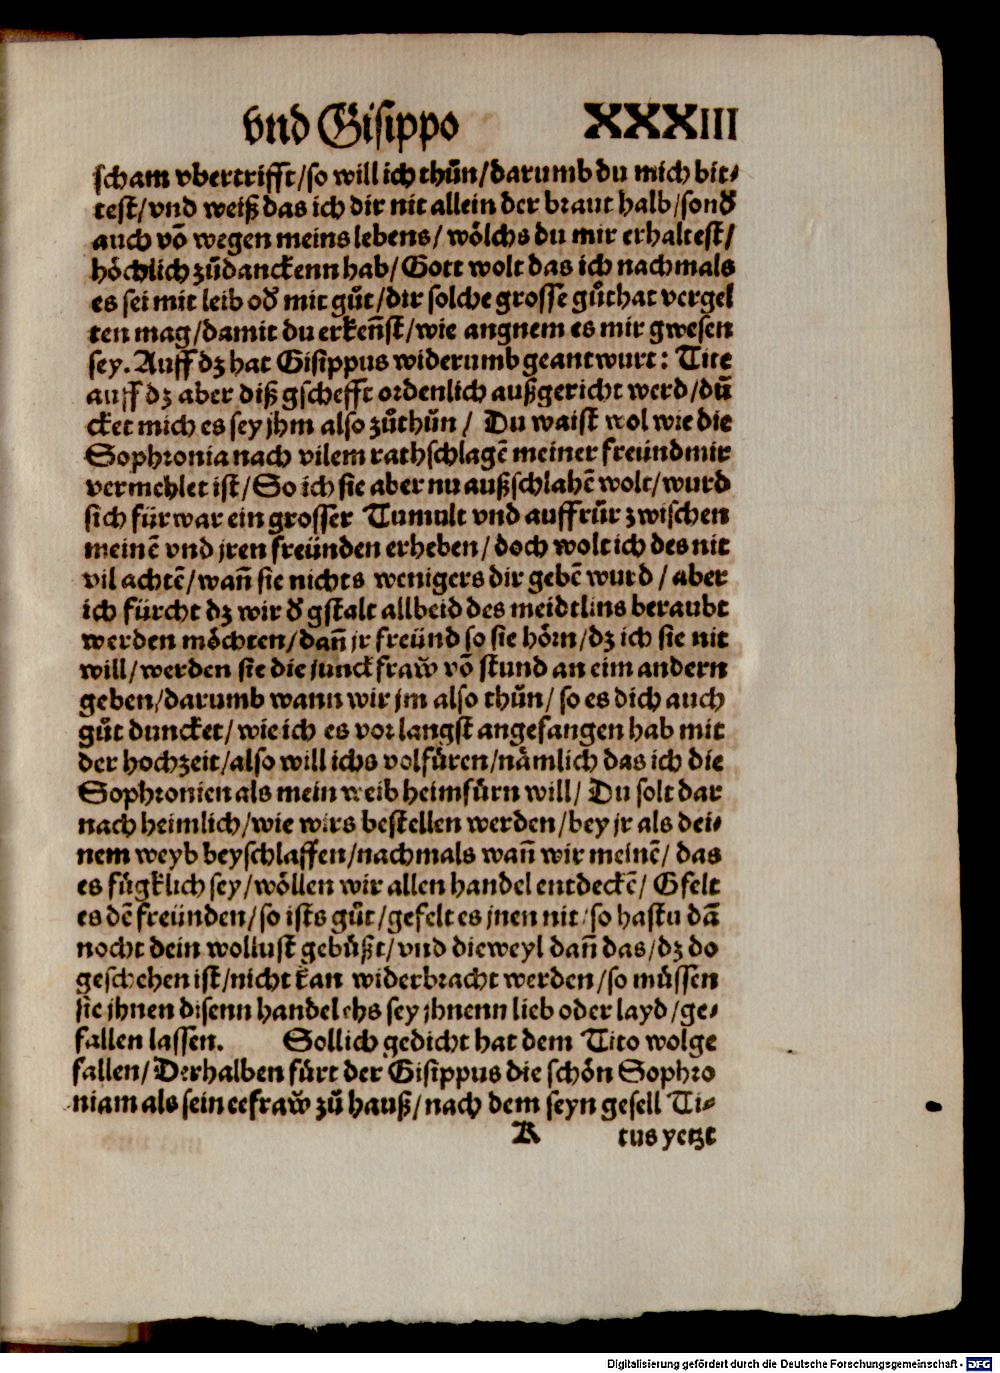 vnd Gisippo XXXIII
scham vbertrifft/so will ich thůn/darumb du mich bit⸗
test/vnd weiß das ich dir nit allein der braut halb/sonđ
auch vō wegen meins lebens/wölchs du mir erhaltest/
höchlich zůdanckenn hab/Gott wolt das ich nachmals
es sei mit leib ođ mit gůt/dir solche grosse gůthat vergel
ten mag/damit du erkeñst/wie angnem es mir gwesen
sey. Auff dz hat Gisippus widerumb geantwurt: Tite
auff dz aber diß gschefft ordenlich außgericht werd/dū
cket mich es sey jhm also zůthůn/ Du waist wol wie die
Sophronia nach vilem rathschlagē meiner freünd mir
vermehlet ist/So ich sie aber nu außschlahē wolt/wurd
sich fürwar ein grosser Tumult vnd auffrůr zwischen
meinē vnd jren freünden erheben/doch wolt ich des nit
vil achtē/wañ sie nichts wenigers dir gebē wurd/aber
ich fürcht dz wir đ gstalt allbeid des meidtlins beraubt
werden möchten/dañ jr freünd so sie hörn/dz ich sie nit
will/werden sie die junckfraw̌ vō stund an eim andern
geben/darumb wann wir jm also thůn/ so es dich auch
gůt duncket/wie ich es vorlangst angefangen hab mit
der hochzeit/also will ichs volfüren/nämlich das ich die
Sophronien als mein weib heimfürn will/ Du solt dar
nach heimlich/wie wirs bestellen werden/bey jr als dei⸗
nem weyb beyschlaffen/nachmals wañ wir meinē/ das
es fůgklich sey/wöllen wir allen handel entdeckē/ Gfelt
es dē freünden/so ists gůt/gefelt es jnen nit/so hastu dā
nocht dein wollust gebüßt/vnd dieweyl dañ das/dz do
geschehen ist/nicht kan widerbracht werden/so müssen
sie jhnen disenn handel ehs sey jhnenn lieb oder layd/ge⸗
fallen lassen. Sollich gedicht hat dem Tito wolge
fallen/Derhalben fürt der Gisippus die schön Sophro
niam als sein eefraw̌ zů hauß/nach dem seyn gesell Ti⸗
K tus yetzt
Digitalisierung gefördert durch die Deutsche Forschungsgemeinschaft - DFG